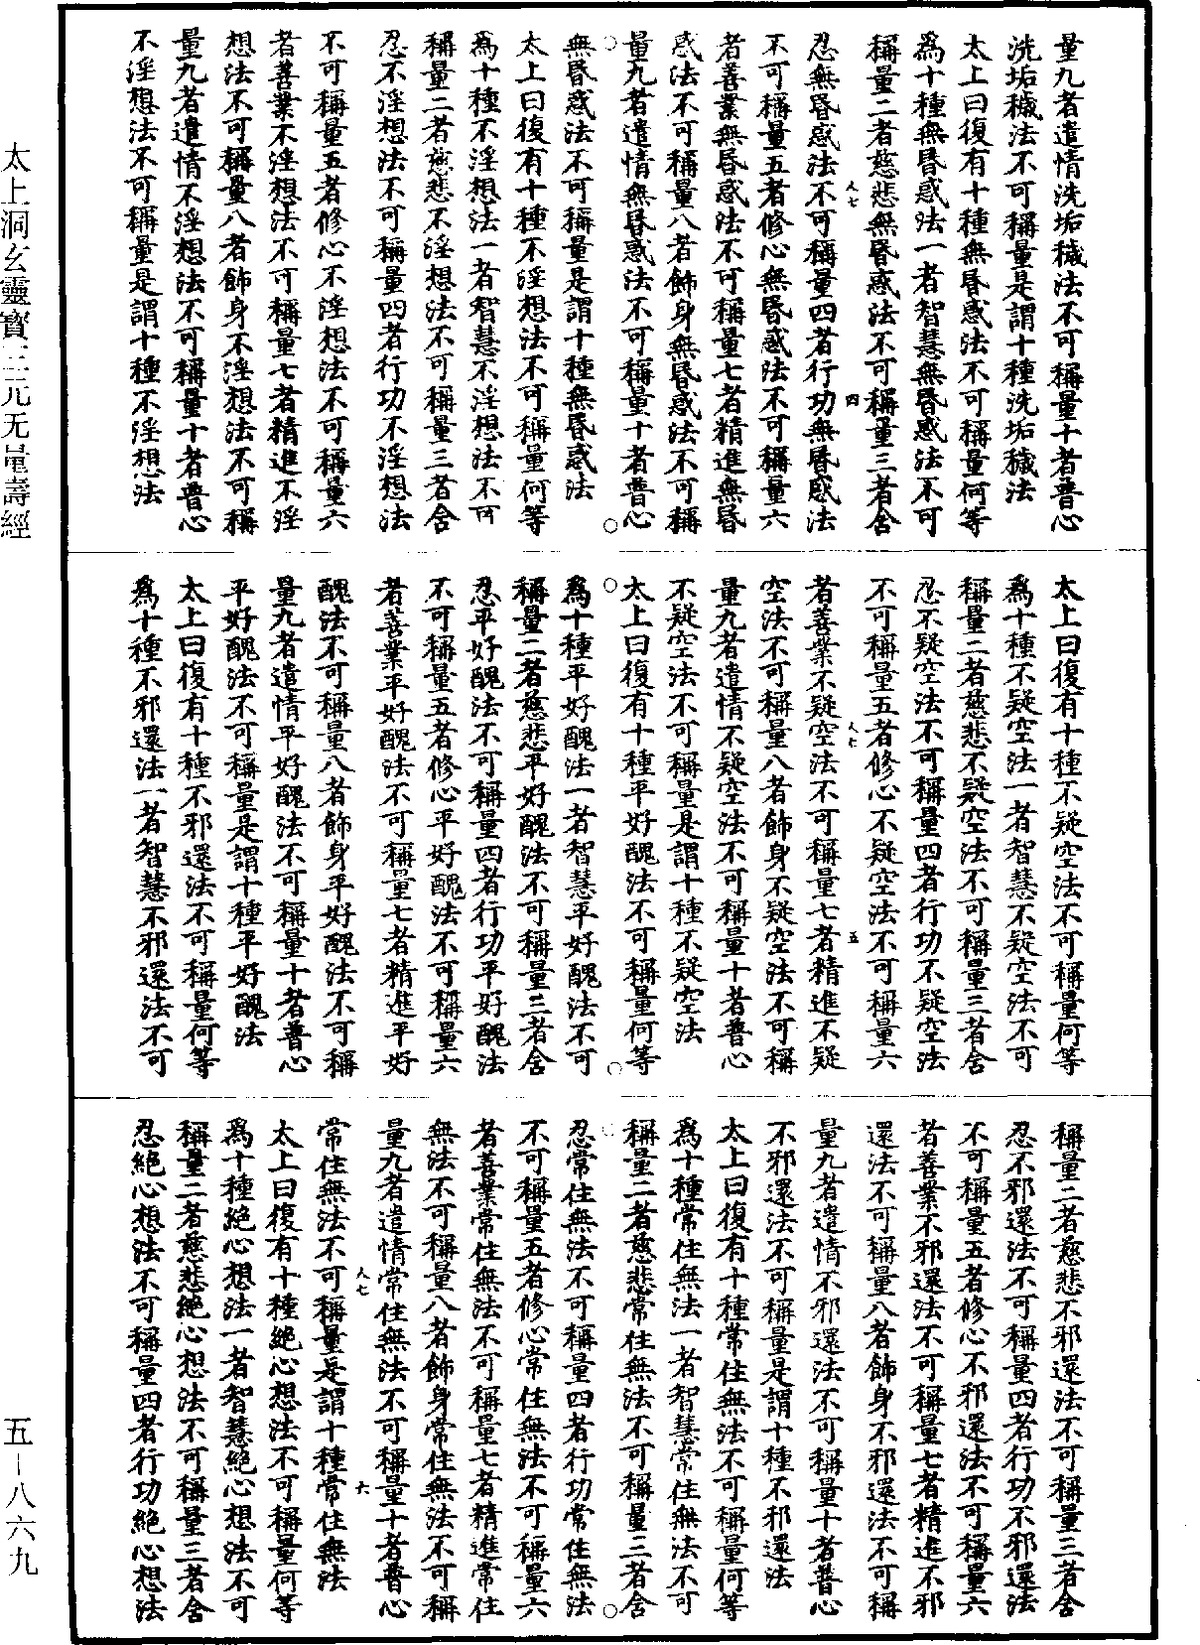 量九者遣情洗垢穢法不可稱量十者普心
洗垢穢法不可稱量是謂十種洗垢穢法
太上曰復有十種無昏惑法不可稱量何等
為十種無昏惑法一者智慧無昏惑法不可
稱量二者慈悲無昏惑法不可稱量三者含
人七 四
忍無昏惑法不可稱量四者行功無昏惑法
不可稱量五者修心無昏惑法不可稱量六
者善業無昏惑法不可稱量七者精進無昏
惑法不可稱量八者飾身無昏惑法不可稱
量九者遣情無昏惑法不可稱量十者普心
無昏惑法不可稱量是謂十種無昏惑法
太上曰復有十種不淫想法不可稱量何等
為十種不淫想法一者智慧不淫想法不可
稱量二者慈悲不淫想法不可稱量三者含
忍不淫想法不可稱量四者行功不淫想法
不可稱量五者修心不淫想法不可稱量六
者善業不淫想法不可稱量七者精進不淫
想法不可稱量八者飾身不淫想法不可稱
量九者遣情不淫想法不可稱量十者普心
不淫想法不可稱量是謂十種不淫想法
太上曰復有十種不疑空法不可稱量何等
為十種不疑空法一者智慧不疑空法不可
稱量二者慈悲不疑空法不可稱量三者含
忍不疑空法不可稱量四者行功不疑空法
不可稱量五者修心不疑空法不可稱量六
人七 五
者善業不疑空法不可稱量七者精進不疑
空法不可稱量八者飾身不疑空法不可稱
量九者遣情不疑空法不可稱量十者普心
不疑空法不可稱量是謂十種不疑空法
太上曰復有十種平好醜法不可稱量何等
為十種平好醜法一者智慧平好醜法不可
稱量二者慈悲平好醜法不可稱量三者含
忍平好醜法不可稱量四者行功平好醜法
不可稱量五者修心平好醜法不可稱量六
者善業平好醜法不可稱量七者精進平好
醜法不可稱量八者飾身平好醜法不可稱
量九者遣情平好醜法不可稱量十者普心
平好醜法不可稱量是謂十種平好醜法
太上曰復有十種不邪還法不可稱量何等
為十種不邪還法一者智慧不邪還法不可
稱量二者慈悲不邪還法不可稱量三者含
忍不邪還法不可稱量四者行功不邪還法
不可稱量五者修心不邪還法不可稱量六
者善業不邪還法不可稱量七者精進不邪
還法不可稱量八者飾身不邪還法不可稱
量九者遣情不邪還法不可稱量十者普心
不邪還法不可稱量是謂十種不邪還法
太上曰復有十種常住無法不可稱量何等
為十種常住無法一者智慧常住無法不可
稱量二者慈悲常住無法不可稱量三者含
忍常住無法不可稱量四者行功常住無法
不可稱量五者修心常住無法不可稱量六
者善業常住無法不可稱量七者精進常住
無法不可稱量八者飾身常住無法不可稱
量九者遣情常住無法不可稱量十者普心
人七 六
常住無法不可稱量是謂十種常住無法
太上曰復有十種絕心想法不可稱量何等
為十種絕心想法一者智慧絕心想法不可
稱量二者慈悲絕心想法不可稱量三者含
忍絕心想法不可稱量四者行功絕心想法
太上洞玄靈寶三元无量壽經
五－八六九